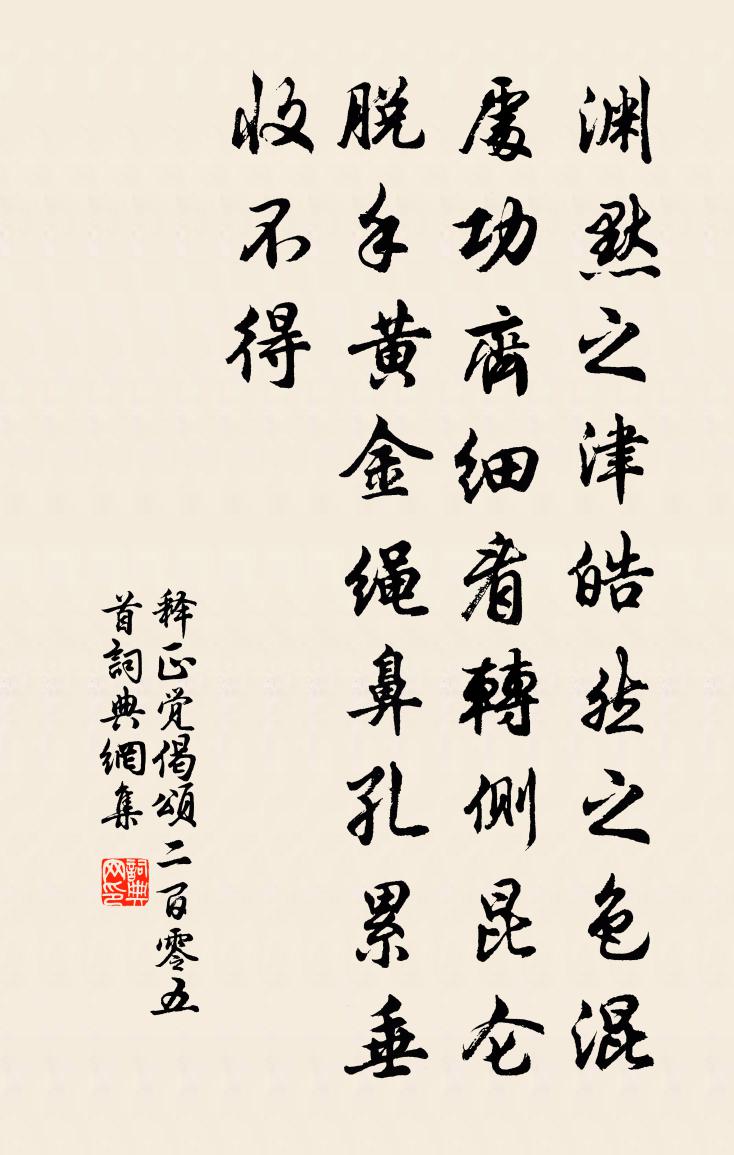 渊默之津皓然之色混
處功齊细看轉側昆仑
脱手黄金绳鼻孔累垂
收不得
释正觉偈頌二百零五
首詞典網集
詞典
网印